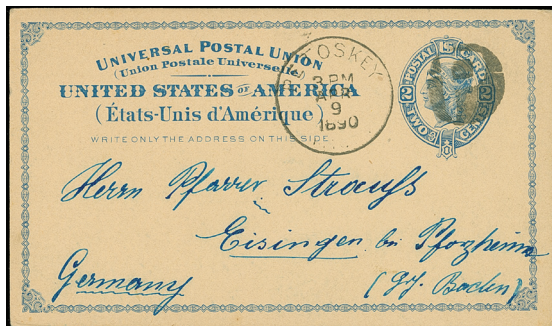 UNIVERSAL POSTAL UNION
(Union Postale Universelle)
UNITED STATES OF AMERICA
(États-Unis d'Amérique)
WRITE ONLY THE ADDRESS ON THIS SIDE.
PETOSKEY
3 PM
APR
9
1890
POSTAL CARD
2 TWO CENTS 2
Herrn Pfarrer Strauss
in
Eisingen bei Pforzheim
Germany
Baden)